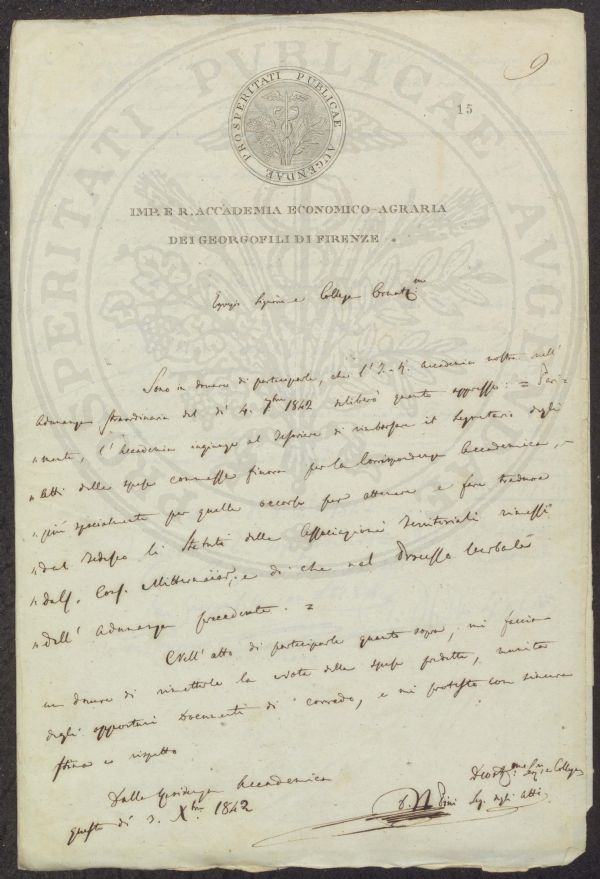 9
15
PROSPERITATI PUBLICAE AUGENDAE
IMP. E R. ACCADEMIA ECONOMICO-AGRARIA
DEI GEORGOFILI DI FIRENZE
Egregio Signore e Collega Ornat.mo
Sono in dovere di parteciparle, che l'I. e R. Accademia nostra nell'
Adunanza straordinaria del dì 4. 7bre 1842 deliberò quanto appresso: = Pari=
"mente, l'Accademia ingiunge al Tesoriere di rimborsare il Segretario degli
"Atti delle spese commesse finora per la Corrispondenza Accademica, e
"più specialmente per quelle occorse per ottenere e fare tradurre
"dal Tedesco li Statuti delle Associazioni Territoriali rimessi
"dal S. Corr. Mittermaier, e di che nel Processo Verbale
"dell'Adunanza precedente. =
Nell'atto di parteciparle quanto sopra, mi faccio
un dovere di rimetterle la nota delle spese predette, munita
degli opportuni Documenti di corredo, e mi protesto con sincera
stima e rispetto
Dalla Residenza Accademica
questo dì 3. Xbre 1842
Devot.mo Collega
Pini Seg. degli Atti